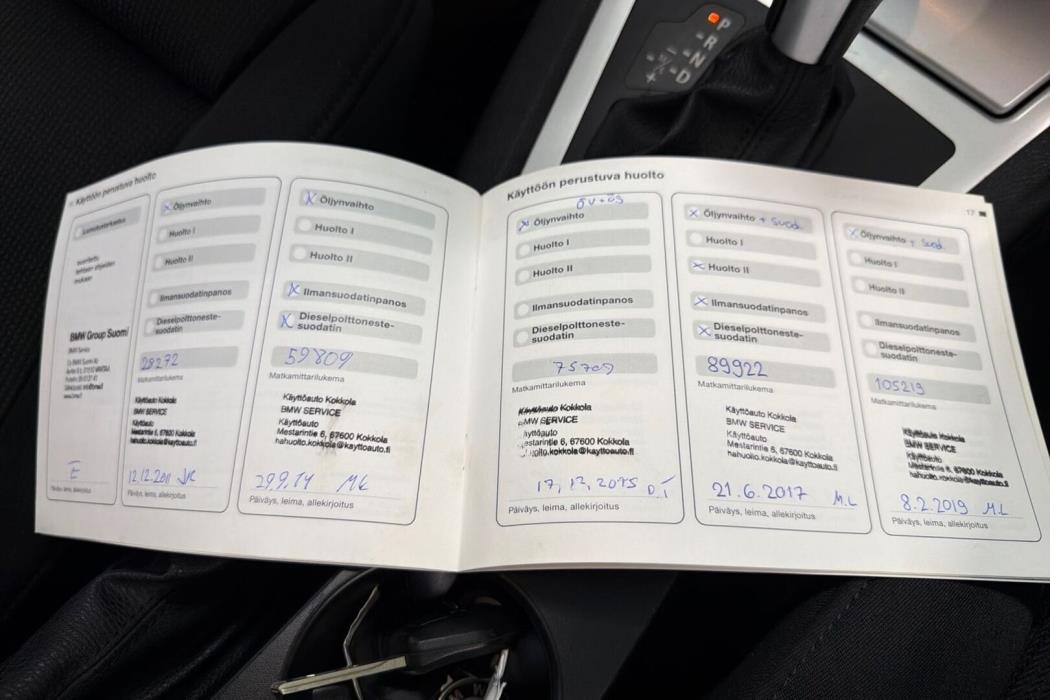 P
R
N
D
Käyttöön perustuva huolto
BMW Group Suomi
BMW Service
Öljynvaihto
Huolto I
Huolto II
Ilmansuodatinpanos
Dieselpolttoneste-
suodatin
28272
Matkamittarilukema
Käyttöauto Kokkola
BMW SERVICE
Käyttöauto
Mestarintie 6, 67600 Kokkola
hahuolto.kokkola@kayttoauto.fi
12.12.2011
Päiväys, leima, allekirjoitus
Öljynvaihto
Huolto I
Huolto II
Ilmansuodatinpanos
Dieselpolttoneste-
suodatin
59809
Matkamittarilukema
Käyttöauto Kokkola
BMW SERVICE
Käyttöauto
Mestarintie 6, 67600 Kokkola
hahuolto.kokkola@kayttoauto.fi
29.9.14 ML
Päiväys, leima, allekirjoitus
Käyttöön perustuva huolto
17
Öljynvaihto
Huolto I
Huolto II
Ilmansuodatinpanos
Dieselpolttoneste-
suodatin
Matkamittarilukema
Käyttöauto Kokkola
BMW SERVICE
Käyttöauto
Mestarintie 6, 67600 Kokkola
kokkola@kayttoauto.fi
17.12.2015
Päiväys, leima, allekirjoitus
Öljynvaihto + Suod.
Huolto I
Huolto II
Ilmansuodatinpanos
Dieselpolttoneste-
suodatin
89922
Matkamittarilukema
Käyttöauto Kokkola
BMW SERVICE
Käyttöauto
Mestarintie 6, 67600 Kokkola
hahuolto.kokkola@kayttoauto.fi
21.6.2017 M.L
Päiväys, leima, allekirjoitus
Öljynvaihto + Suod.
Huolto I
Huolto II
Ilmansuodatinpanos
Dieselpolttoneste-
suodatin
105219
Matkamittarilukema
Käyttöauto Kokkola
BMW SERVICE
Käyttöauto
Mestarintie 6, 67600 Kokkola
hahuolto.kokkola@kayttoauto.fi
8.2.2019 M.L
Päiväys, leima, allekirjoitus